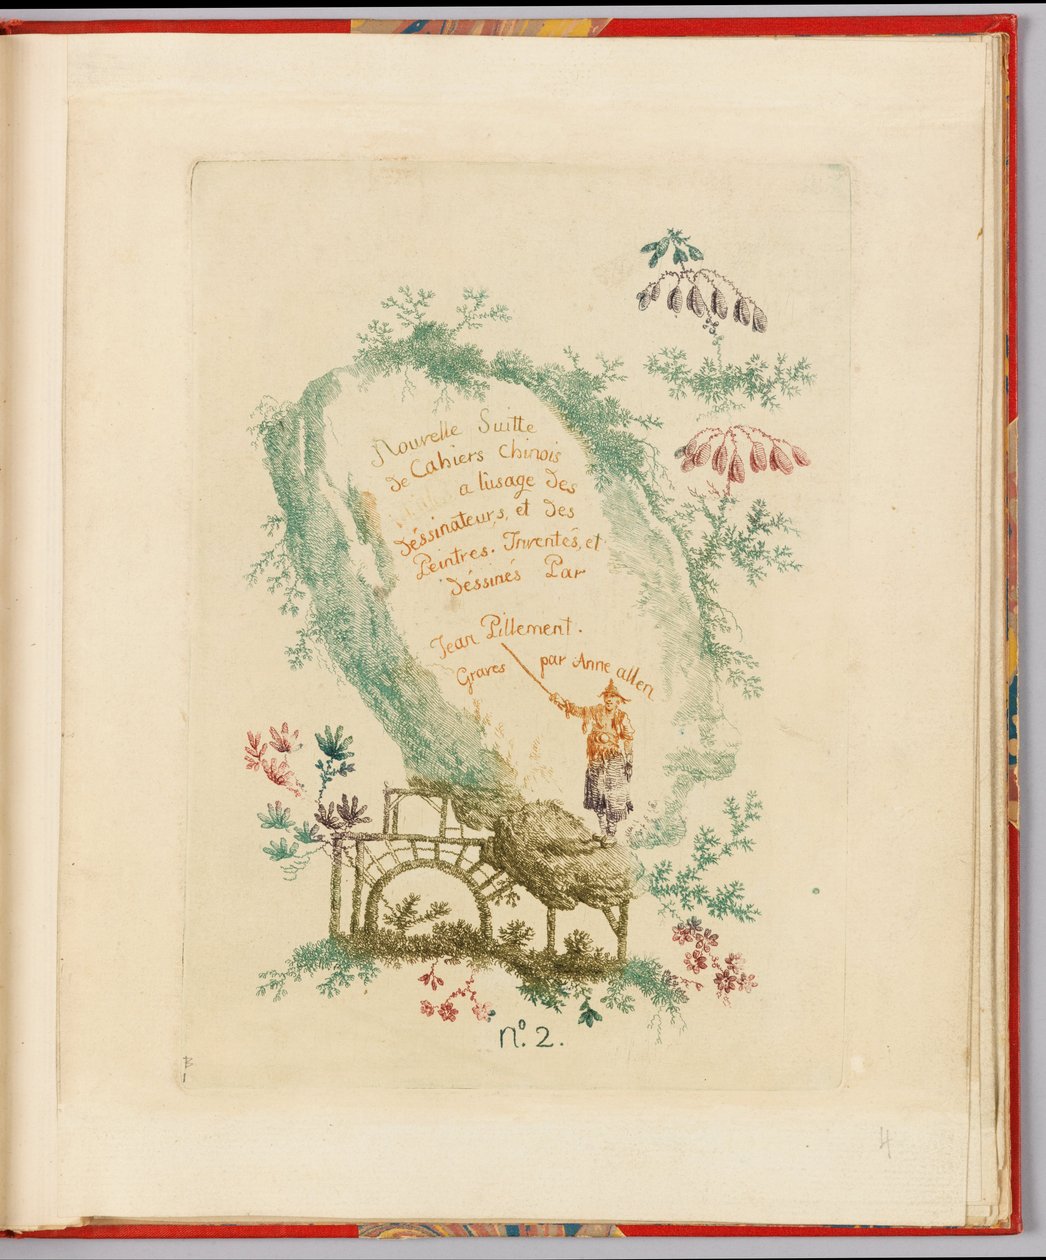 Nouvelle Suitte
de Cahiers Chinois
a l'usage des
déssinateurs, et des
Peintres. Inventés, et
déssinés Par
Jean Pillement.
Gravés par Anne allen
nº. 2.
B
1
4